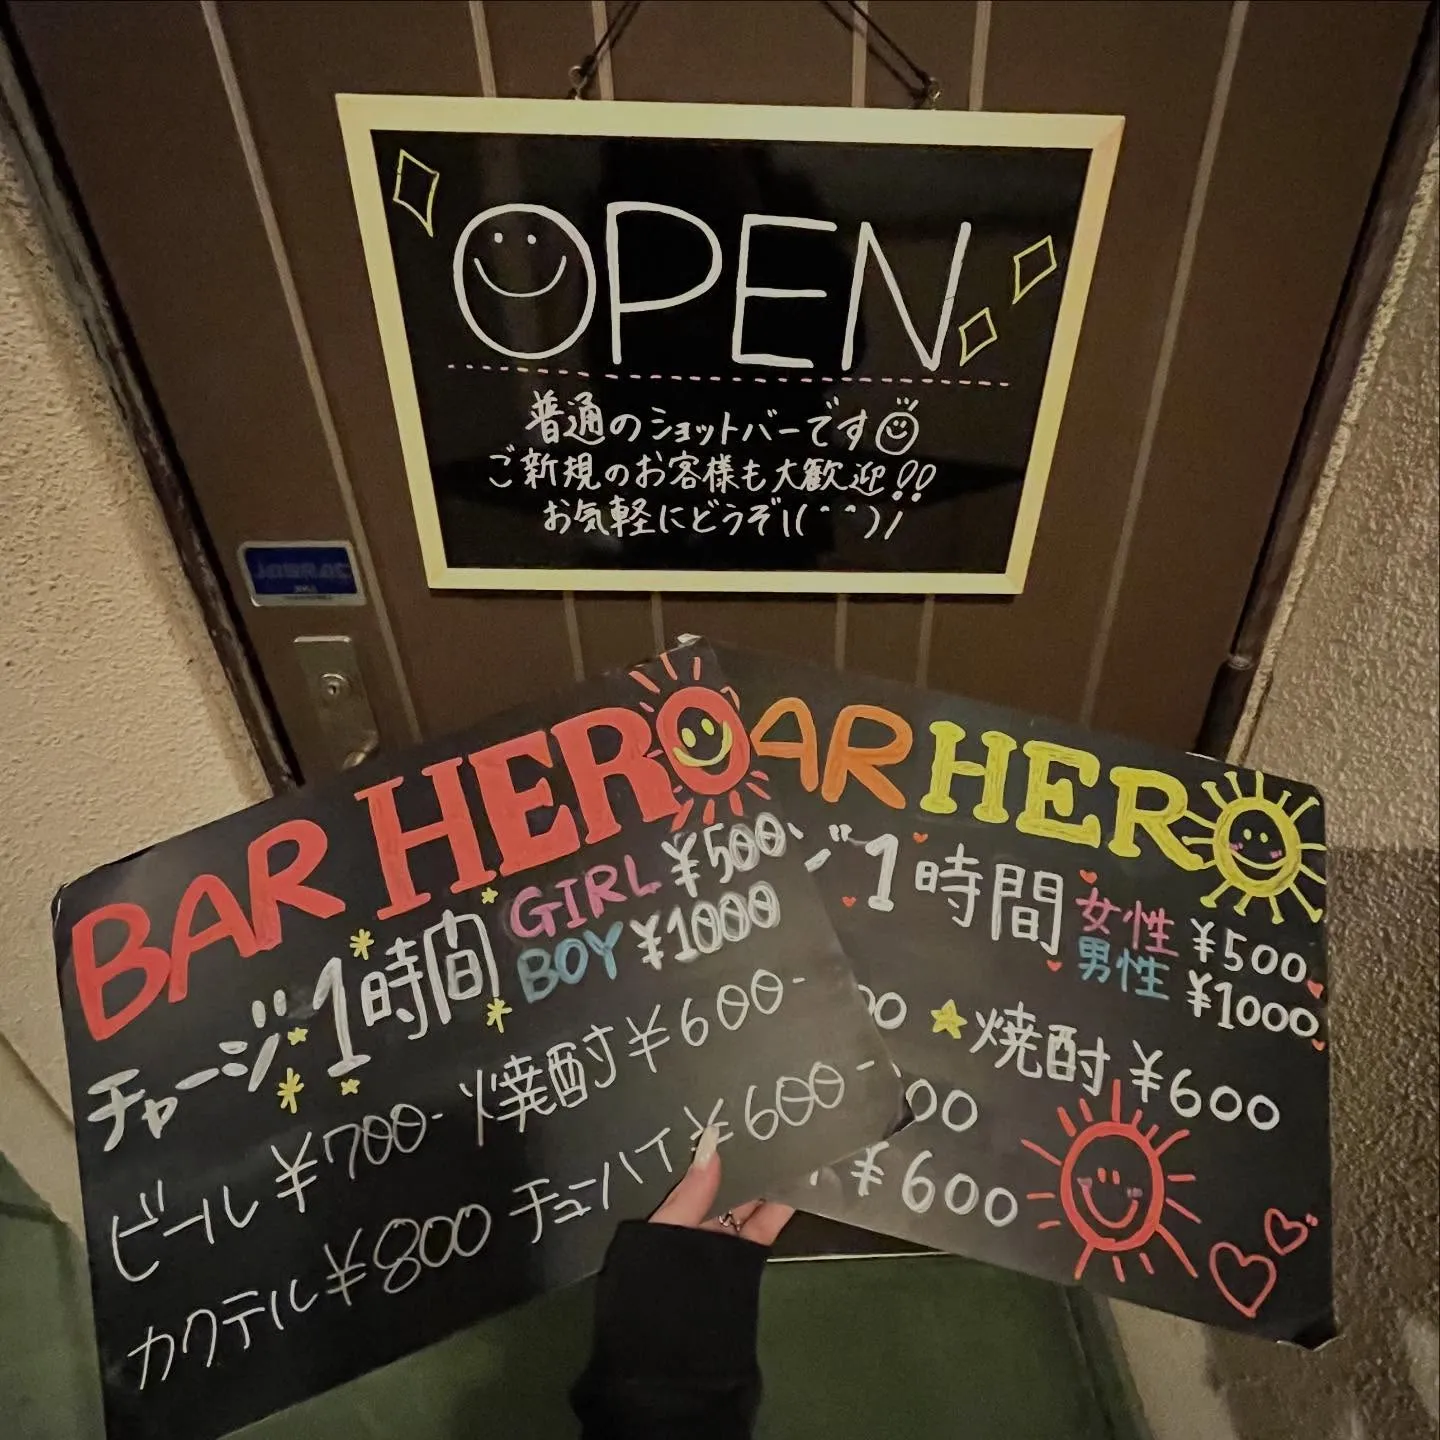 OPEN
普通のショットバーです
ご新規のお客様も大歓迎!!
お気軽にどうぞ\(^^)/
BAR HERO
チャージ1時間 GIRL ¥500
BOY ¥1000
ビール ¥700- 焼酎 ¥600-
カクテル ¥800 チューハイ ¥600-
AR HERO
ジ 1時間 女性 ¥500
男性 ¥1000
00 焼酎 ¥600
00
¥600